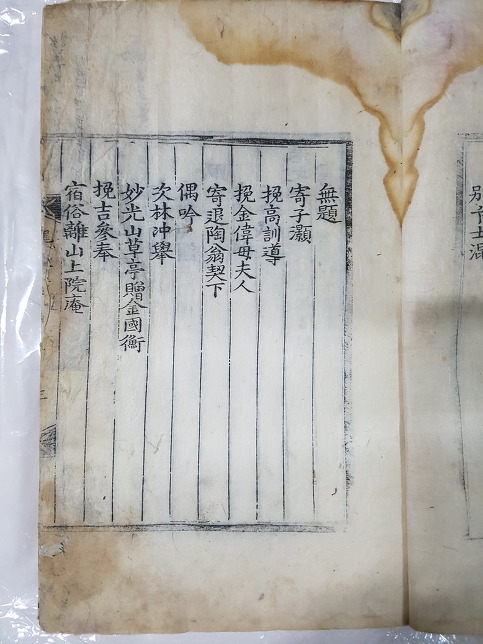 別᠎上舍混
無題
寄子灝
挽高訓導
挽金偉母夫人
寄退陶翁契下
偶吟
次林沖舉
妙光山草亭贈金國衡
挽吉參奉
宿俗離山上院庵